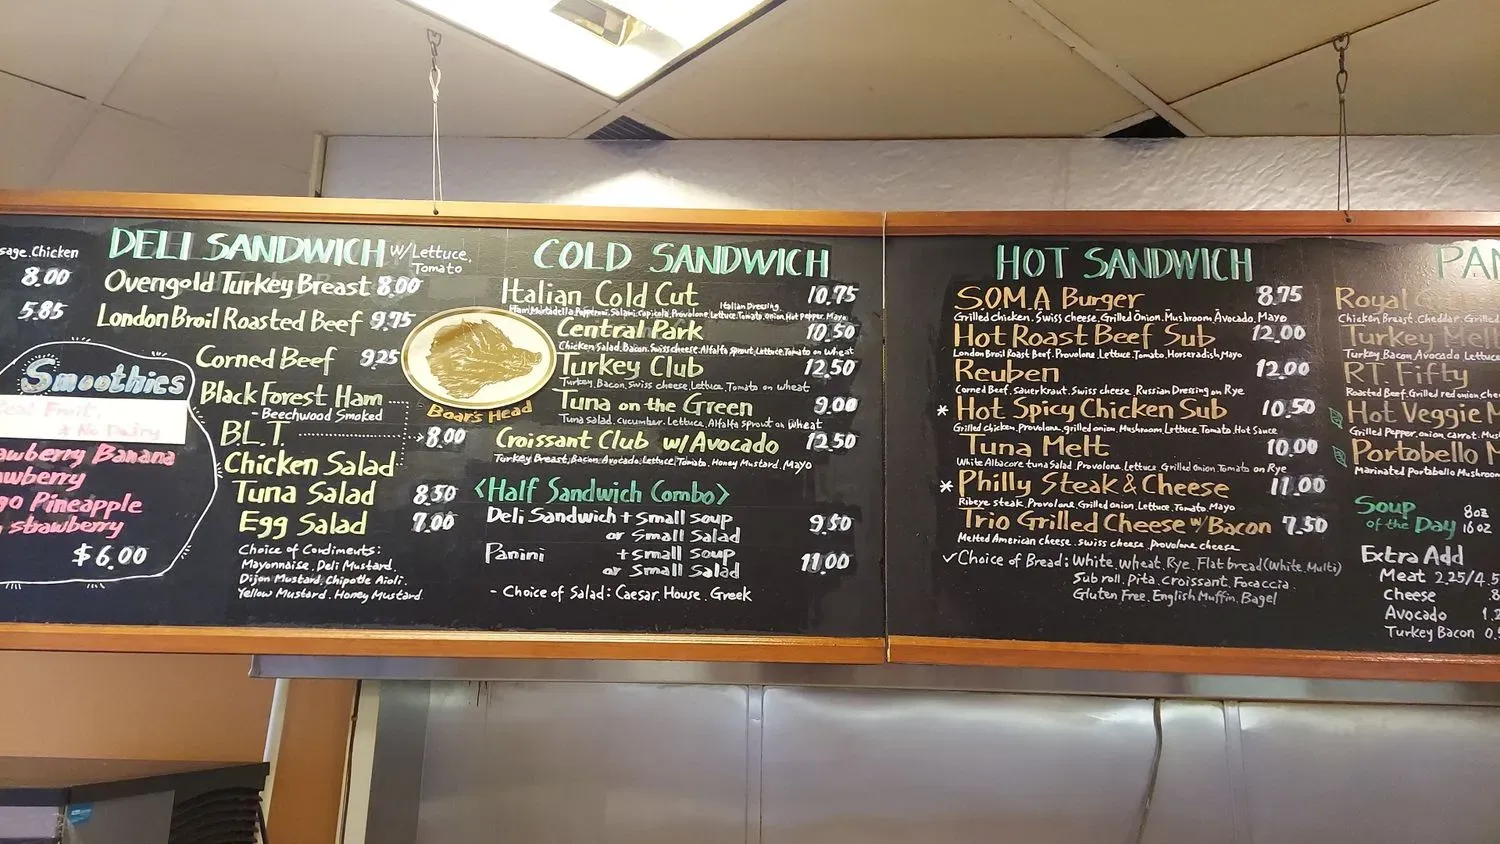 sage. Chicken
8.00
5.85
Smoothies
Real Fruit,
* No Dairy
awberry Banana
wberry
go Pineapple
strawberry
$6.00
DELI SANDWICH w/Lettuce, Tomato
Ovengold Turkey Breast 8.00
London Broil Roasted Beef 9.75
Corned Beef 9.25
Black Forest Ham
- Beechwood Smoked
B.L.T. 8.00
Chicken Salad
Tuna Salad 8.50
Egg Salad 7.00
Choice of Condiments:
Mayonnaise. Deli Mustard.
Dijon Mustard. Chipotle Aioli.
Yellow Mustard. Honey Mustard.
Boar's Head
COLD SANDWICH
Italian Cold Cut 10.75
Italian Dressing
Ham, Mortadella, Pepperoni, Salami, Capicola, Provolone, Lettuce, Tomato, onion, Hot pepper, Mayo
Central Park 10.50
Chicken Salad, Bacon, Swiss cheese, Alfalfa sprout, Lettuce, Tomato on wheat
Turkey Club 12.50
Turkey, Bacon, Swiss cheese, Lettuce, Tomato on wheat
Tuna on the Green 9.00
Tuna salad, cucumber, Lettuce, Alfalfa sprout on wheat
Croissant Club w/ Avocado 12.50
Turkey Breast, Bacon, Avocado, Lettuce, Tomato, Honey Mustard, Mayo
<Half Sandwich Combo>
Deli Sandwich + Small Soup 9.50
or Small Salad
Panini + Small Soup 11.00
or Small Salad
- Choice of Salad: Caesar. House. Greek
HOT SANDWICH
S.O.M.A Burger 8.75
Grilled chicken. Swiss cheese. Grilled Onion. Mushroom. Avocado. Mayo
Hot Roast Beef Sub 12.00
London Broil Roast Beef. Provolone. Lettuce. Tomato. Horseradish, Mayo
Reuben 12.00
Corned Beef. Sauerkraut. Swiss cheese. Russian Dressing on Rye
* Hot Spicy Chicken Sub 10.50
Grilled chicken. Provolone. grilled onion. Mushroom. Lettuce. Tomato. Hot Sauce
Tuna Melt 10.00
White Albacore tuna Salad. Provolone. Lettuce. Grilled Onion. Tomato on Rye
* Philly Steak & Cheese 11.00
Ribeye steak. Provolone. Grilled onion. Lettuce. Tomato. Mayo
Trio Grilled Cheese w/ Bacon 7.50
Melted American cheese. swiss cheese. provolone cheese
✓ Choice of Bread: White, wheat, Rye, Flat bread (White, Multi)
Sub roll, Pita, Croissant, Focaccia
Gluten Free, English Muffin, Bagel
PAN
Royal
Chicken Breast. Cheddar. Grilled
Turkey Melt
Turkey Bacon Avocado Lettuce
R.T. Fifty
Roasted Beef, Grilled red onion
Hot Veggie M
Grilled Pepper, onion, carrot,
Portobello M
Marinated Portabello Mushroom
Soup of the Day 8oz
16oz
Extra Add
Meat 2.25/4.5
Cheese
Avocado 1.
Turkey Bacon 0.